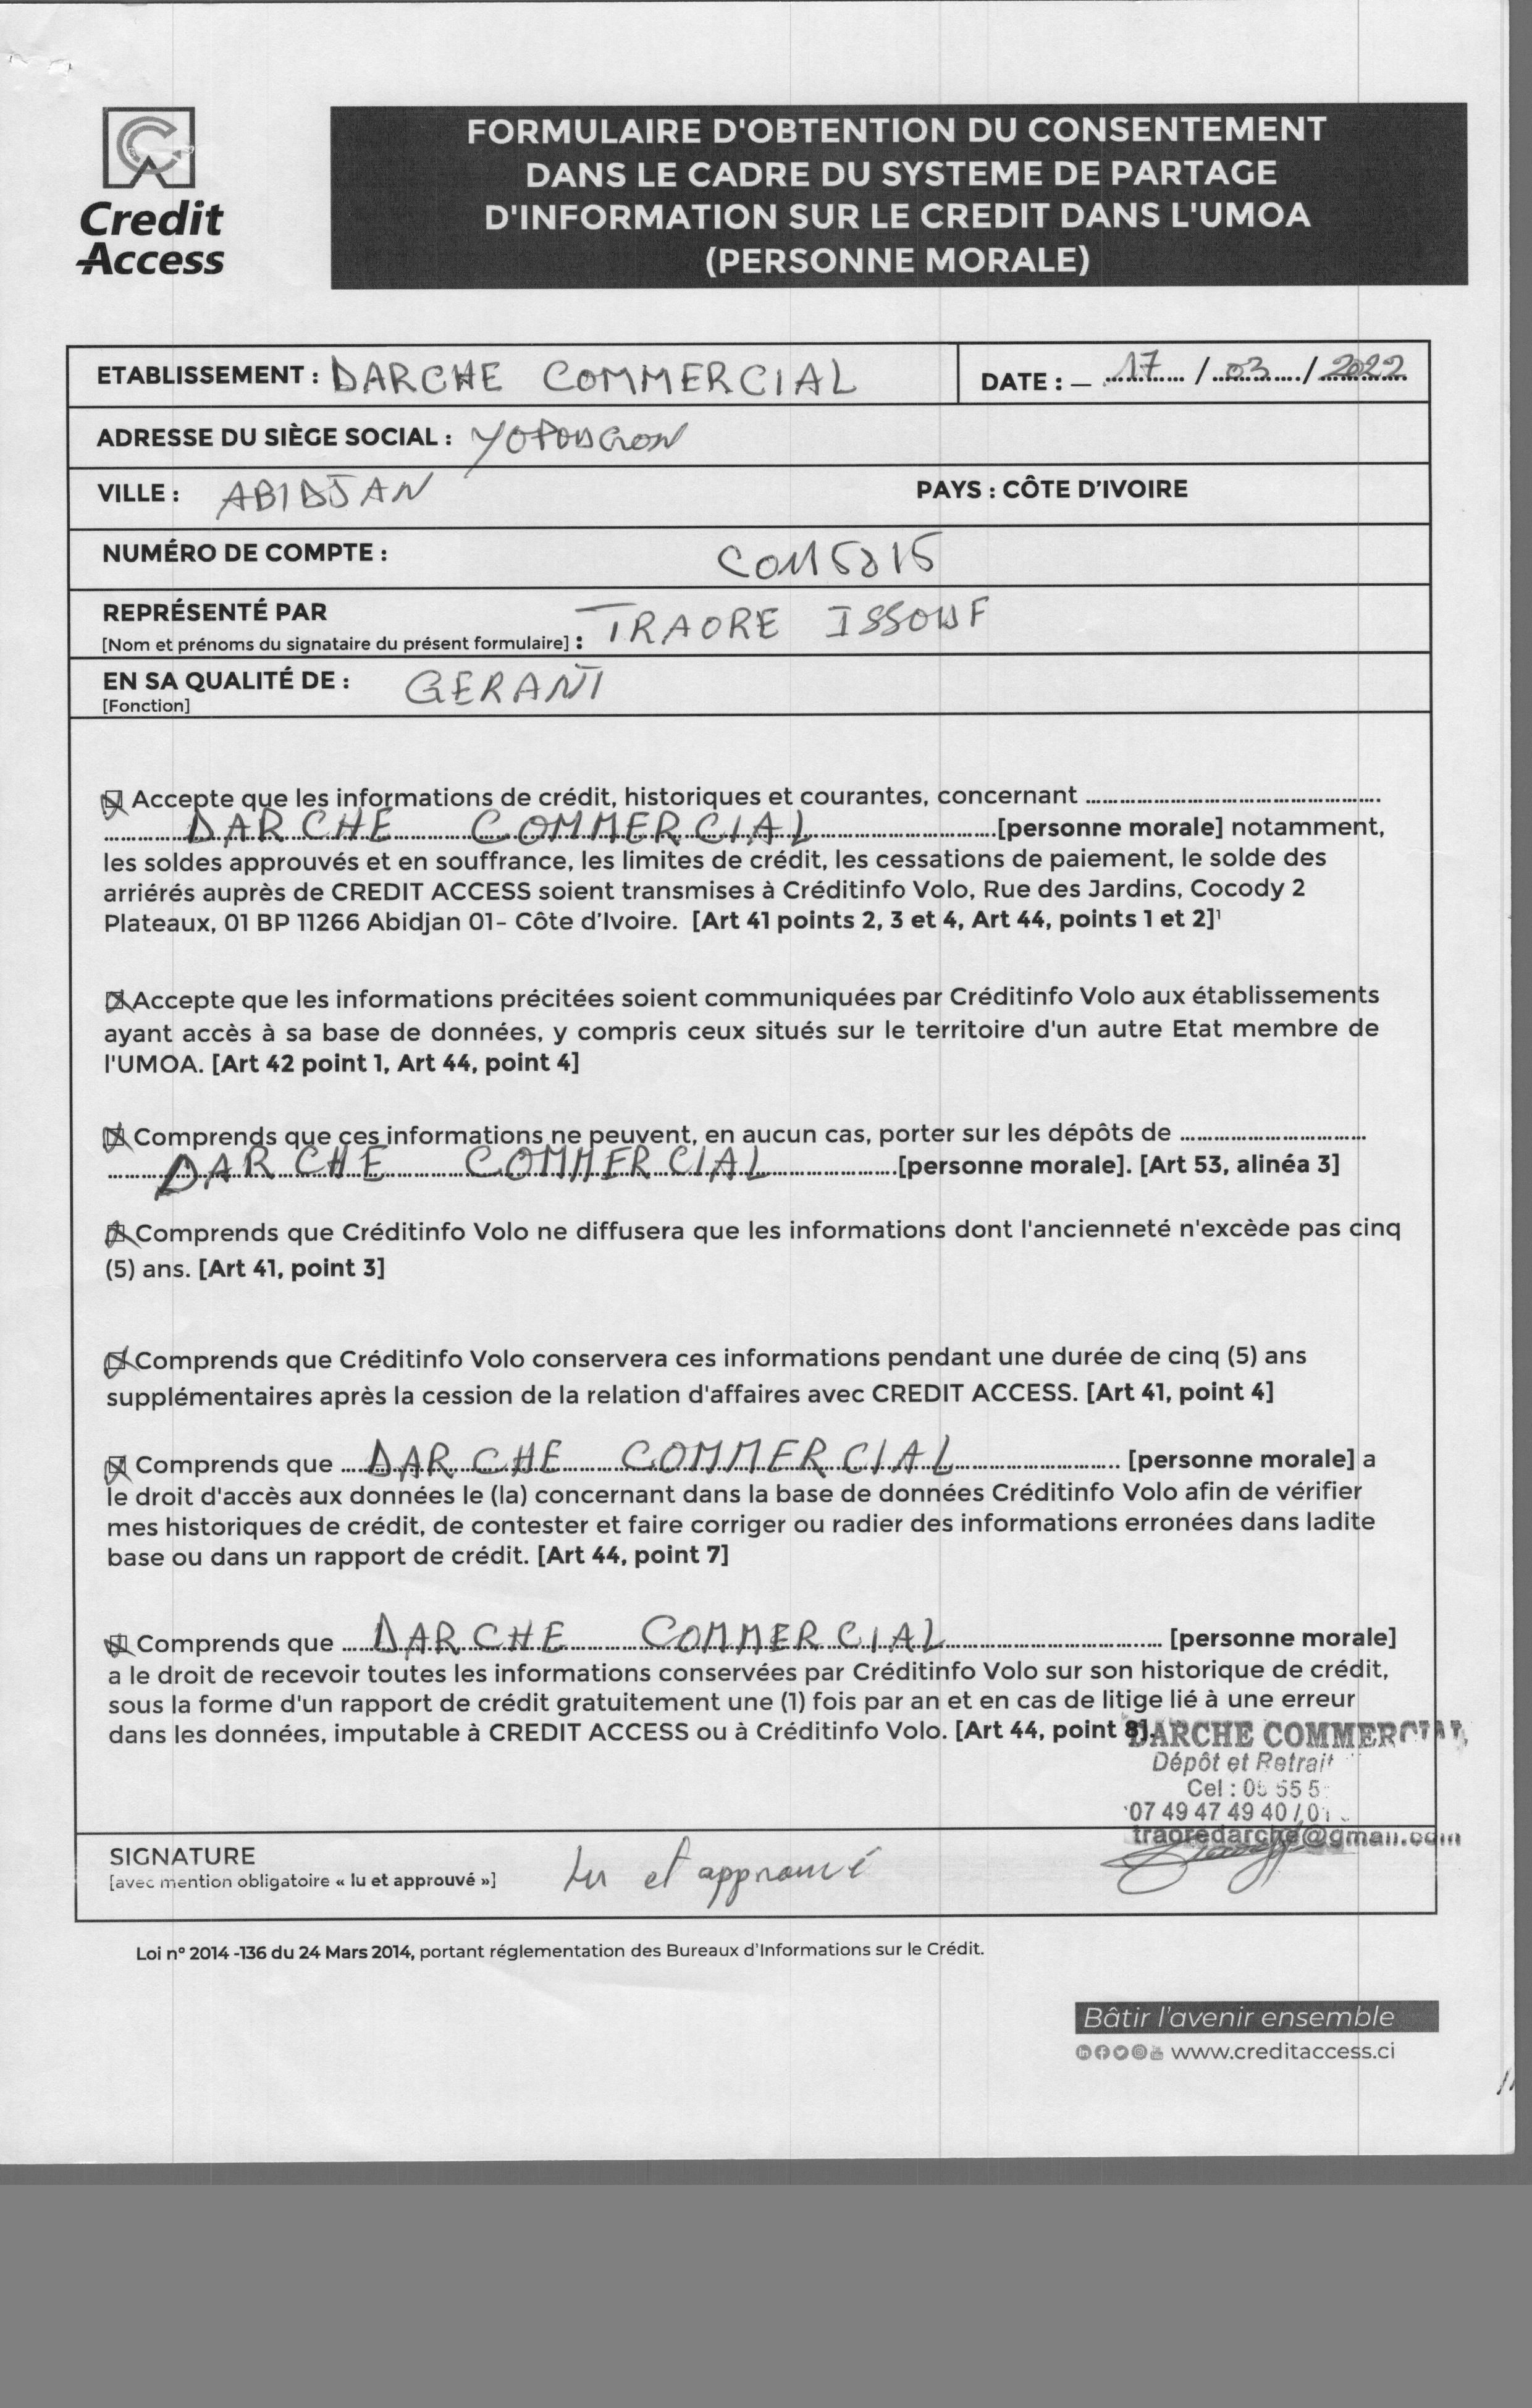 Credit
Access
FORMULAIRE D'OBTENTION DU CONSENTEMENT
DANS LE CADRE DU SYSTEME DE PARTAGE
D'INFORMATION SUR LE CREDIT DANS L'UMOA
(PERSONNE MORALE)
ETABLISSEMENT : DARCHE COMMERCIAL
DATE : – 17 / 03 / 2022
ADRESSE DU SIÈGE SOCIAL : YOPOUGON
VILLE : ABIDJAN PAYS : CÔTE D'IVOIRE
NUMÉRO DE COMPTE :
REPRÉSENTÉ PAR
[Nom et prénoms du signataire du présent formulaire] : TRAORE ISSOUF
EN SA QUALITÉ DE : GERANT
[Fonction]
Accepte que les informations de crédit, historiques et courantes, concernant
DARCHE COMMERCIAL [personne morale] notamment,
les soldes approuvés et en souffrance, les limites de crédit, les cessations de paiement, le solde des
arriérés auprès de CREDIT ACCESS soient transmises à Créditinfo Volo, Rue des Jardins, Cocody 2
Plateaux, 01 BP 11266 Abidjan 01- Côte d'Ivoire. [Art 41 points 2, 3 et 4, Art 44, points 1 et 2]¹
Accepte que les informations précitées soient communiquées par Créditinfo Volo aux établissements
ayant accès à sa base de données, y compris ceux situés sur le territoire d'un autre Etat membre de
l'UMOA. [Art 42 point 1, Art 44, point 4]
Comprends que ces informations ne peuvent, en aucun cas, porter sur les dépôts de
DARCHE COMMERCIAL [personne morale]. [Art 53, alinéa 3]
Comprends que Créditinfo Volo ne diffusera que les informations dont l'ancienneté n'excède pas cinq
(5) ans. [Art 41, point 3]
Comprends que Créditinfo Volo conservera ces informations pendant une durée de cinq (5) ans
supplémentaires après la cession de la relation d'affaires avec CREDIT ACCESS. [Art 41, point 4]
Comprends que DARCHE COMMERCIAL [personne morale] a
le droit d'accès aux données le (la) concernant dans la base de données Créditinfo Volo afin de vérifier
mes historiques de crédit, de contester et faire corriger ou radier des informations erronées dans ladite
base ou dans un rapport de crédit. [Art 44, point 7]
Comprends que DARCHE COMMERCIAL [personne morale]
a le droit de recevoir toutes les informations conservées par Créditinfo Volo sur son historique de crédit,
sous la forme d'un rapport de crédit gratuitement une (1) fois par an et en cas de litige lié à une erreur
dans les données, imputable à CREDIT ACCESS ou à Créditinfo Volo. [Art 44, point 8].
DARCHE COMMERCIAL
Dépôt et Retrait
Cel :
07 49 47 49 40 /
traoredarche@gmail.com
SIGNATURE
[avec mention obligatoire « lu et approuvé »] Lu et approuvé
Loi n° 2014 -136 du 24 Mars 2014, portant réglementation des Bureaux d'Informations sur le Crédit.
Bâtir l'avenir ensemble
www.creditaccess.ci